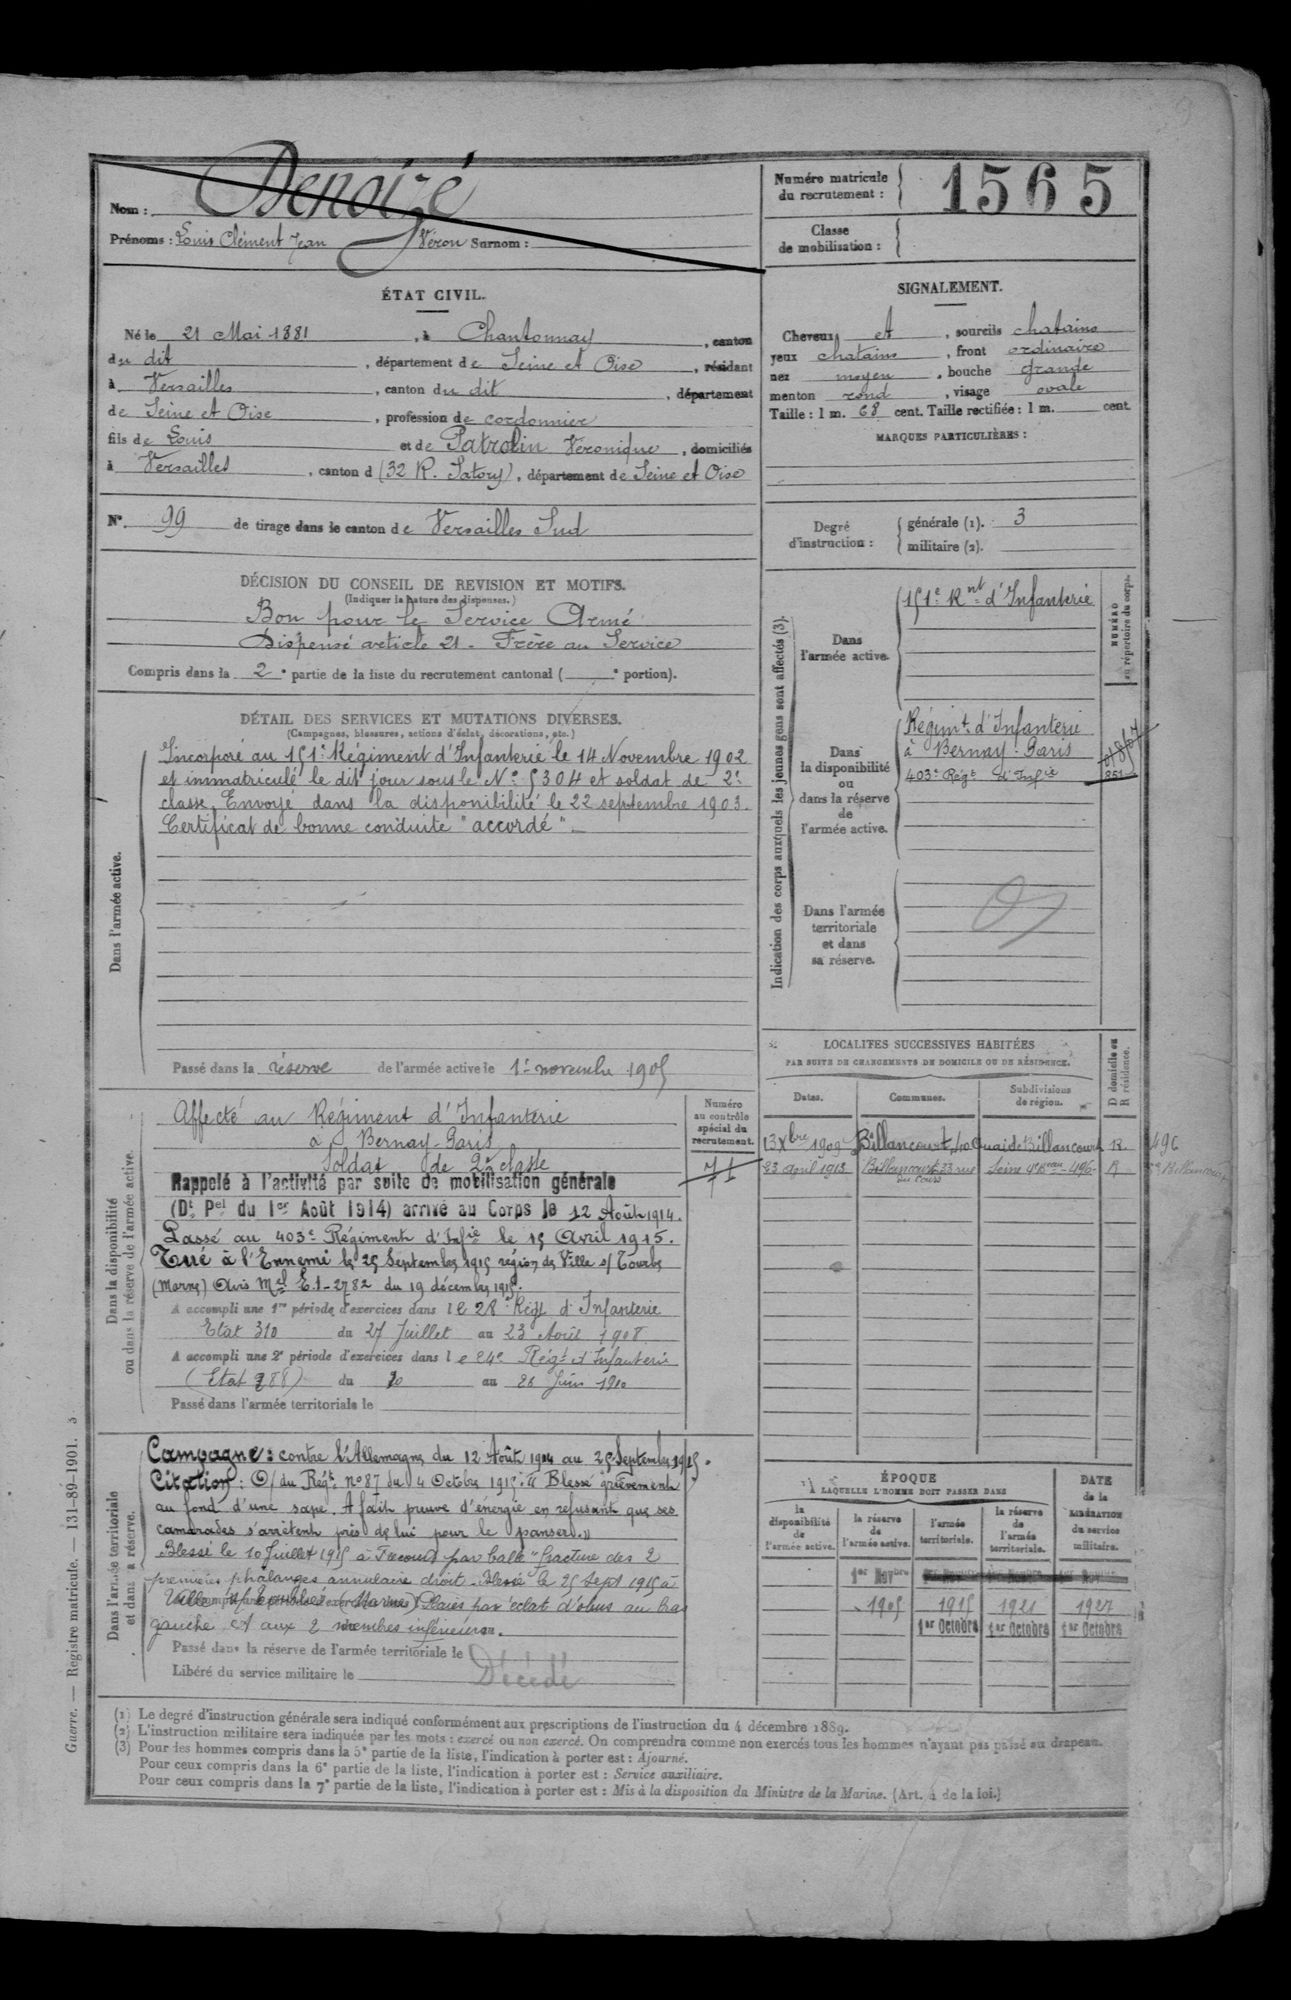 Nom : Denoizé
Prénoms : Louis Clément Jean Véron Surnom :
Numéro matricule
du recrutement :
1565
Classe
de mobilisation :
ÉTAT CIVIL.
Né le 21 Mai 1881, à Chantonnay, canton
du dit, département de Seine et Oise, résidant
à Versailles, canton du dit, département
de Seine et Oise, profession de cordonnier
fils de Louis et de Patrolin Véronique, domiciliés
à Versailles, canton d (32 R. Satory), département de Seine et Oise
N° 99 de tirage dans le canton de Versailles Sud
SIGNALEMENT.
Cheveux et, sourcils chatains
yeux chatains, front ordinaire
nez moyen, bouche grande
menton rond, visage ovale
Taille : 1 m. 68 cent. Taille rectifiée : 1 m. cent.
MARQUES PARTICULIÈRES :
Degré
d'instruction :
générale (1). 3
militaire (2).
DÉCISION DU CONSEIL DE REVISION ET MOTIFS.
(Indiquer la nature des dispenses.)
Bon pour le Service Armé
Dispensé article 21 - Frère au Service
Compris dans la 2e partie de la liste du recrutement cantonal ( e portion).
DÉTAIL DES SERVICES ET MUTATIONS DIVERSES.
(Campagnes, blessures, actions d'éclat, décorations, etc.)
Dans l'armée active.
Incorporé au 151e Régiment d'Infanterie le 14 Novembre 1902
et immatriculé le dit jour sous le N° 5304 et soldat de 2e
classe. Envoyé dans la disponibilité le 22 septembre 1903.
Certificat de bonne conduite "accordé".
Passé dans la réserve de l'armée active le 1er novembre 1905
Indication des corps auxquels les jeunes gens sont affectés (3).
NUMÉRO
au répertoire du corps.
Dans
l'armée active.
151e Rnt d'Infanterie
Dans
la disponibilité
ou
dans la réserve
de
l'armée active.
Régimt d'Infanterie
à Bernay-Paris
403e Régt d'Infie
851
Dans l'armée
territoriale
et dans
sa réserve.
Dans la disponibilité
ou dans la réserve de l'armée active.
Numéro
au contrôle
spécial du
recrutement.
Affecté au Régiment d'Infanterie
à Bernay-Paris
Soldat de 2e classe
Rappelé à l'activité par suite de mobilisation générale
(Dt Pel du 1er Août 1914) arrivé au Corps le 12 Août 1914.
Passé au 403e Régiment d'Infie le 15 Avril 1915.
Tué à l'Ennemi le 25 Septembre 1915 région de Ville s/ Tourbe
(Marne) Avis Mel E.1-2782 du 19 décembre 1915.
A accompli une 1re période d'exercices dans le 28e Régt d'Infanterie
Etat 310 du 27 Juillet au 23 Août 1908
A accompli une 2e période d'exercices dans le 24e Régt d'Infanterie
du 10 au 26 Juin 1910
Passé dans l'armée territoriale le
LOCALITÉS SUCCESSIVES HABITÉES
PAR SUITE DE CHANGEMENTS DE DOMICILE OU DE RÉSIDENCE.
Dates. Communes. Subdivisions
de région.
D domicile ou
R résidence.
13 Xbre 1909 Billancourt, 40 Quai de Billancourt R. 496
23 avril 1913 Billancourt 23 rue Seine 4e Bau-496 R
du Cours
Dans l'armée territoriale
et dans sa réserve.
Campagne : contre l'Allemagne du 12 Août 1914 au 25 Septembre 1915.
Citation : O/ du Régt n° 87 du 4 Octobre 1915 : "Blessé grièvement
au fond d'une sape. A fait preuve d'énergie en refusant que ses
camarades s'arrêtent près de lui pour le panser."
Blessé le 10 Juillet 1915 à par balle "fracture des 2
premières phalanges annulaire droit. Blessé le 25 Sept 1915 à
Ville s/ Tourbe (Marne) Plaies par éclat d'obus au bras
gauche et aux 2 membres inférieurs.
Passé dans la réserve de l'armée territoriale le
Libéré du service militaire le
Décédé
ÉPOQUE
À LAQUELLE L'HOMME DOIT PASSER DANS
DATE
de la
LIBÉRATION
du service
militaire.
la
disponibilité
de
l'armée active.
la réserve
de
l'armée active.
l'armée
territoriale.
la réserve
de
l'armée
territoriale.
1er Novbre 1er Novbre 1er Novbre 1er Novbre
1905 1915 1921 1927
1er Octobre 1er Octobre 1er Octobre
(1) Le degré d'instruction générale sera indiqué conformément aux prescriptions de l'instruction du 4 décembre 1889.
(2) L'instruction militaire sera indiquée par les mots : exercé ou non exercé. On comprendra comme non exercés tous les hommes n'ayant pas passé au drapeau.
(3) Pour les hommes compris dans la 5e partie de la liste, l'indication à porter est : Ajourné.
Pour ceux compris dans la 6e partie de la liste, l'indication à porter est : Service auxiliaire.
Pour ceux compris dans la 7e partie de la liste, l'indication à porter est : Mis à la disposition du Ministre de la Marine. (Art. 4 de la loi.)
Guerre. — Registre matricule. — 131-89-1901. 3